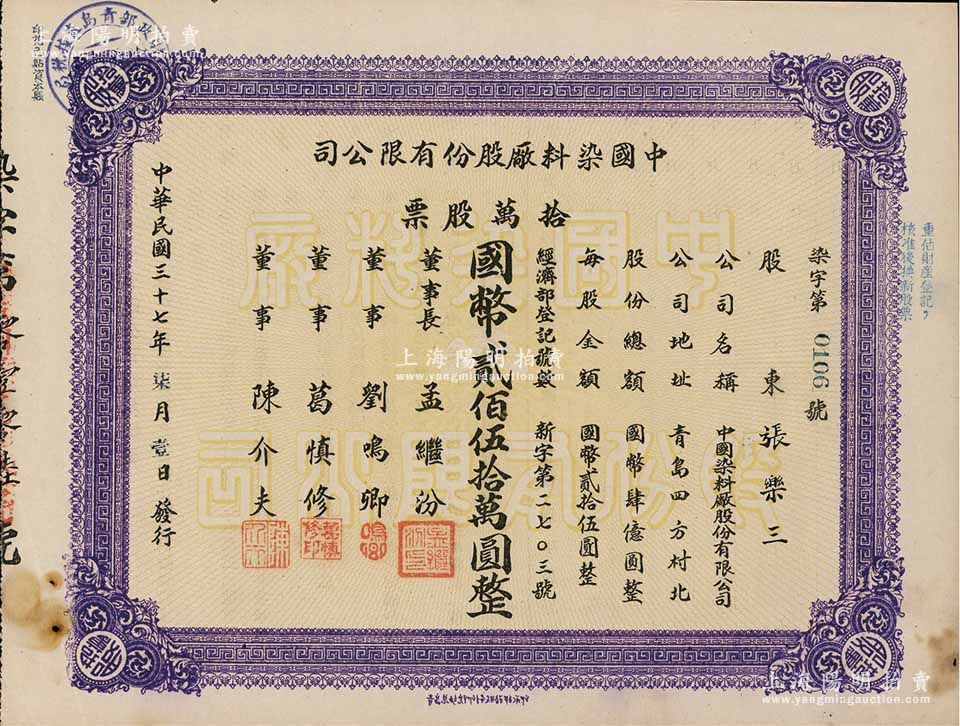 中國染料廠股份有限公司
拾萬股票
染字第 0106 號
股東 張樂三
公司名稱 中國染料廠股份有限公司
公司地址 青島四方村北
股份總額 國幣肆億圓整
每股金額 國幣貳拾伍圓整
經濟部登記號數 新字第二七〇三號
國幣貳佰伍拾萬圓整
董事長 孟繼汾
董事 劉鳴卿
董事 葛慎修
董事 陳介夫
中華民國三十七年 柒月壹日發行
重估財產登記,
核准後換新股票
中國染料廠
股份有限公司
上海陽明拍賣
www.yangmingauction.com
上海陽明拍賣
www.yangmingauction.com
上海陽明拍賣
www.yangmingauction.com
上海陽明拍賣
www.yangmingauction.com
上海陽明拍賣
www.yangmingauction.com